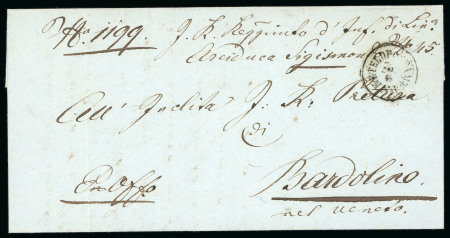 N.o 1199 I. R. Reggimto d' Inf. di Lin.a
Arciduca Sigismon N.o 45
All' Inclita I. R. Pretura
di
Ex Offo Bardolino.
nel Veneto.